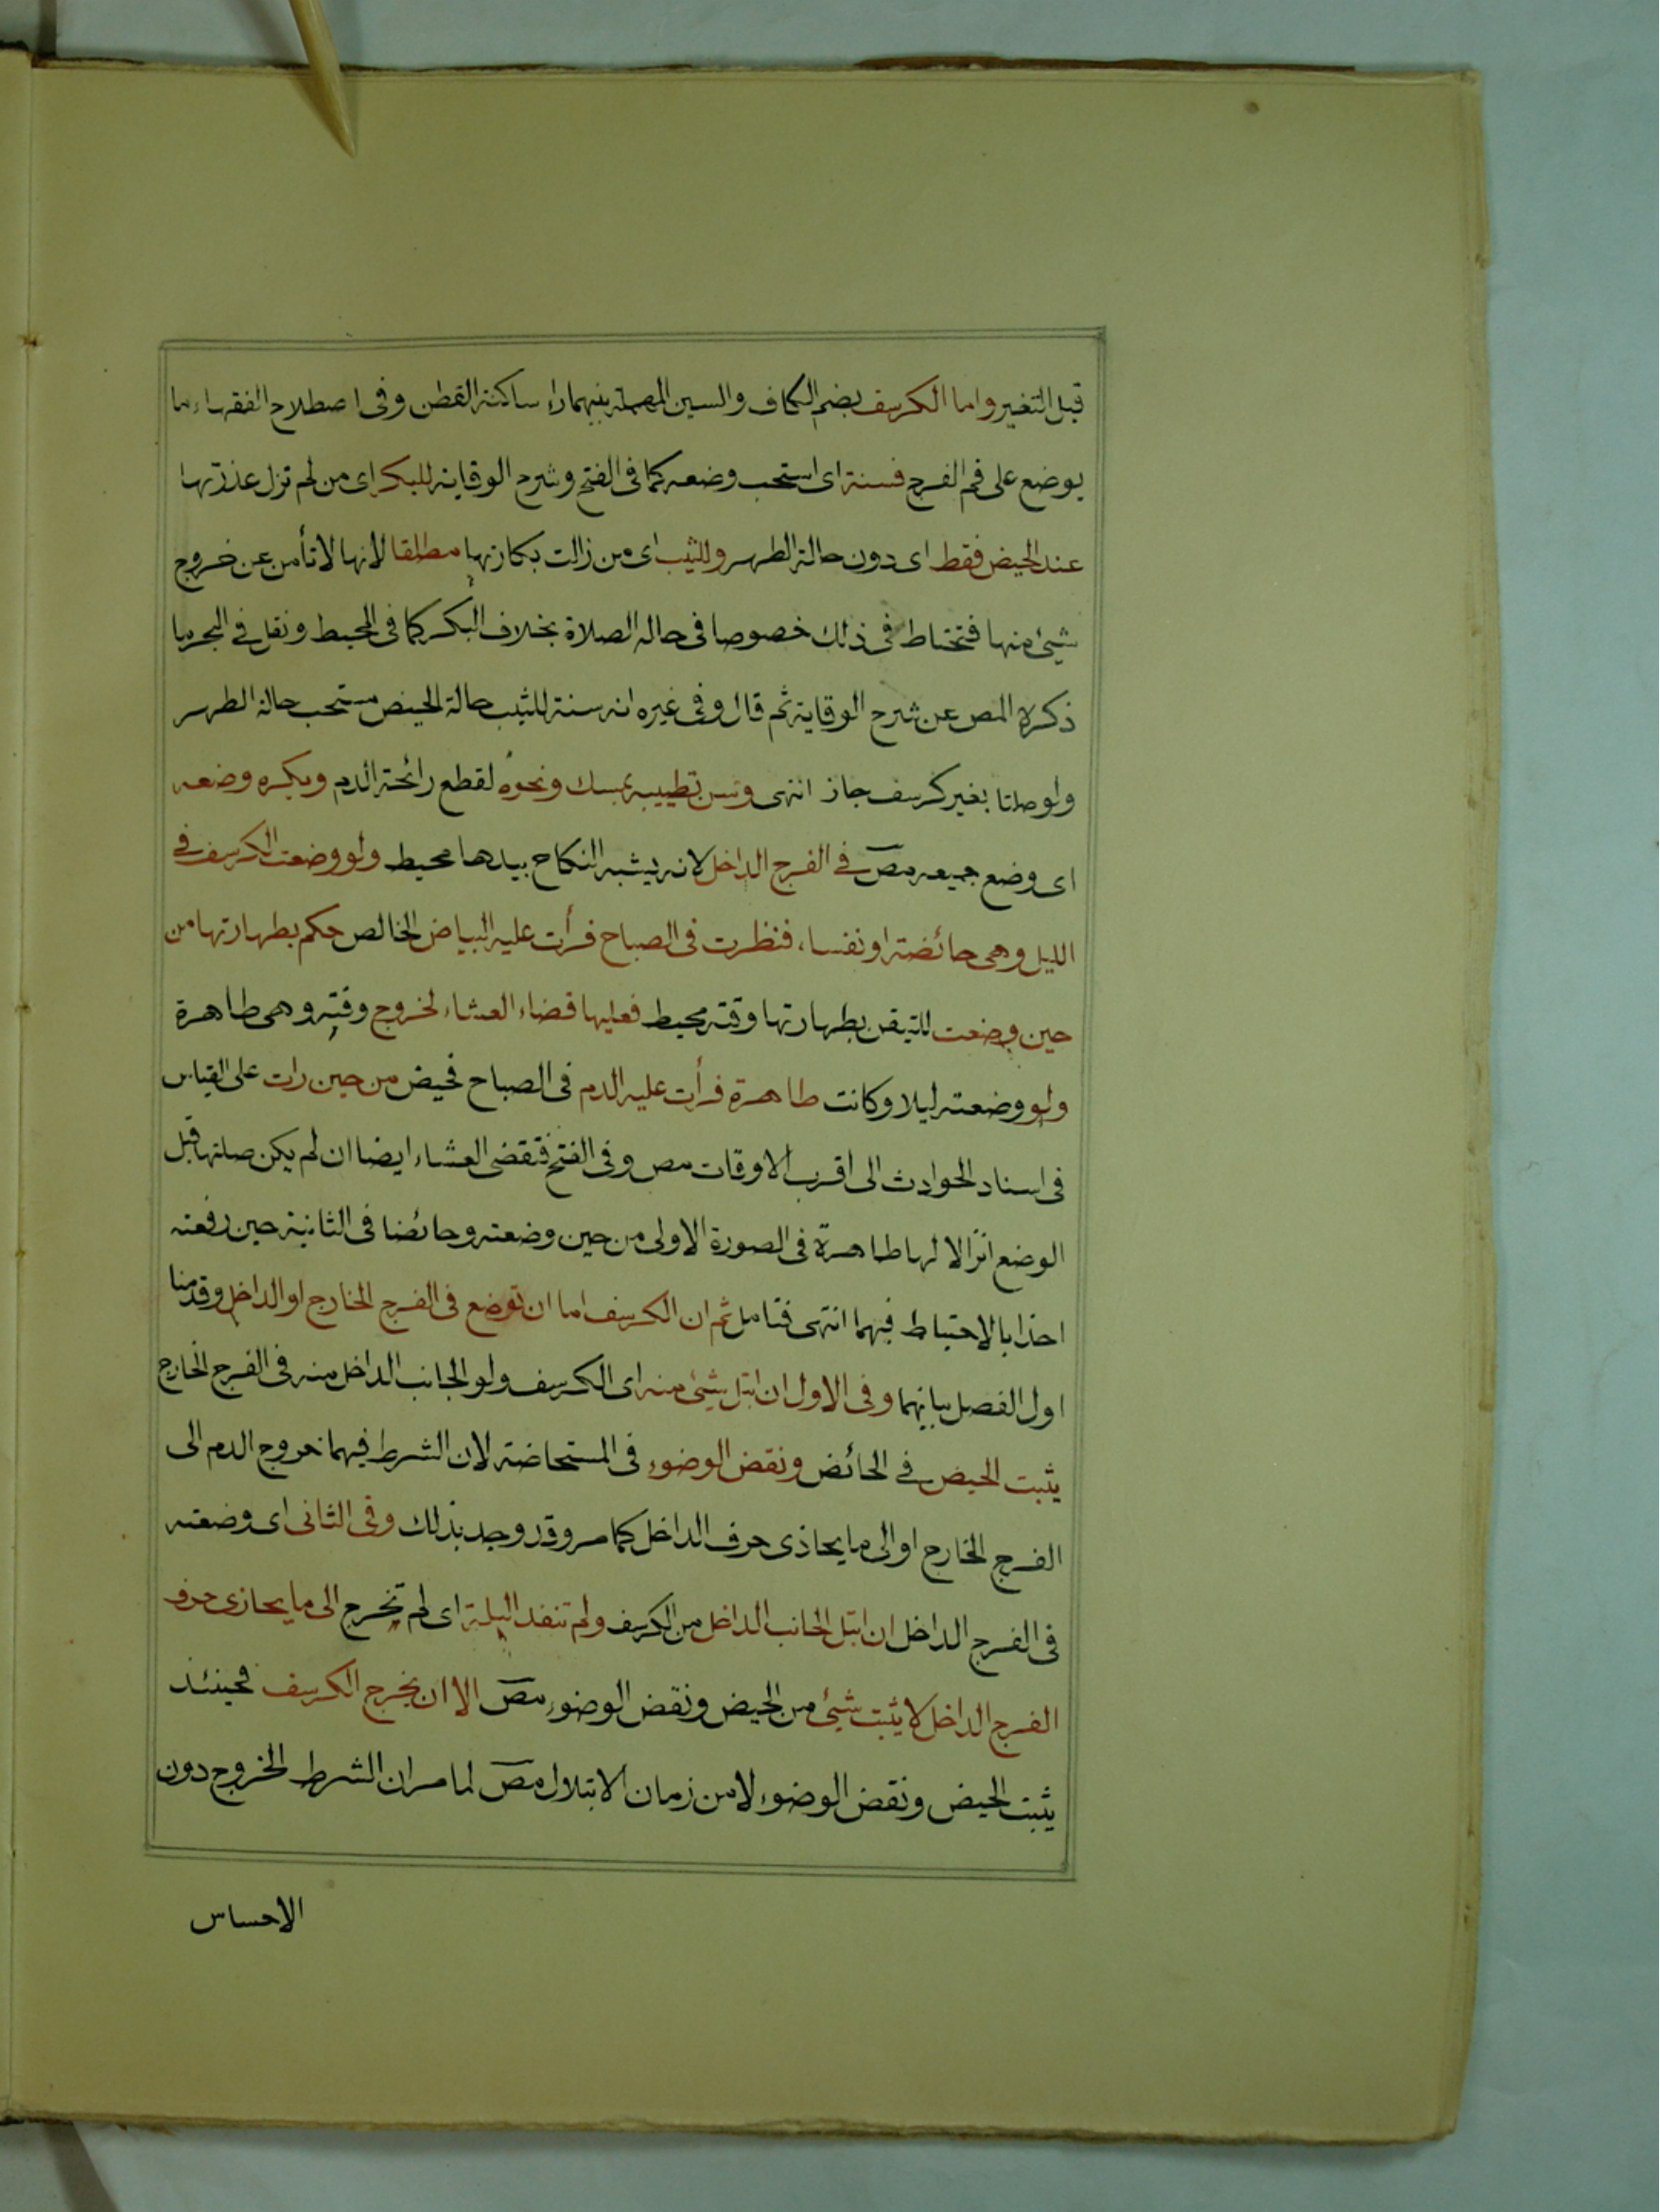 قبل التغير واما الكرسف بضم الكاف والسين المهملة بينهما راء ساكنة القطن وفى اصطلاح الفقهاء ما
يوضع على فم الفرج فسنة اى استحب وضعه كما فى الفتح وشرح الوقاية للبكر اى من لم تزل عذرتها
عند الحيض فقط اى دون حالة الطهر وللثيب اى من زالت بكارتها مطلقا لانها لا تأمن عن خروج
شيئ منها فتحتاط فى ذلك خصوصا فى حالة الصلاة بخلاف البكر كما فى المحيط ونقل فى البحر ما
ذكره المص عن شرح الوقاية ثم قال وفى غيره انه سنة للثيب حالة الحيض مستحب حالة الطهر
ولو صلتا بغير كرسف جاز انتهى وسن تطييبه بمسك ونحوه لقطع رائحة الدم ويكره وضعه
اى وضع جميعه مص فى الفرج الداخل لانه يشبه النكاح بيدها محيط ولو وضعت الكرسف فى
الليل وهى حائضة او نفساء فنظرت فى الصباح فرأت عليه البياض الخالص حكم بطهارتها من
حين وضعت للتيقن بطهارتها وقته محيط فعليها قضاء العشاء لخروج وقته وهى طاهرة
ولو وضعته ليلا وكانت طاهرة فرأت عليه الدم فى الصباح فحيض من حين رات على القياس
فى اسناد الحوادث الى اقرب الاوقات مص وفى الفتح فتقضى العشاء ايضا ان لم يكن صلتها قبل
الوضع انزالا لها طاهرة فى الصورة الاولى من حين وضعته وحائضا فى الثانية حين رفعته
اخذا بالاحتياط فيهما انتهى فتامل ثم ان الكرسف اما ان توضع فى الفرج الخارج او الداخل وقدمنا
اول الفصل بيانهما وفى الاول ان ابتل شيئ منه اى الكرسف ولو الجانب الداخل منه فى الفرج الخارج
يثبت الحيض فى الحائض ونقض الوضوء فى المستحاضة لان الشرط فيهما خروج الدم الى
الفرج الخارج او الى ما يحاذى حرف الداخل كما مر وقد وجد بذلك وفى الثانى اى وضعته
فى الفرج الداخل ان ابتل الجانب الداخل من الكرسف ولم تنفد البلة اى لم تخرج الى ما يحازى حرف
الفرج الداخل لا يثبت شيئ من الحيض ونقض الوضوء مص الا ان يخرج الكرسف فحينئذ
يثبت الحيض ونقض الوضوء لا من زمان الابتلال مص لما مر ان الشرط الخروج دون
الاحساس